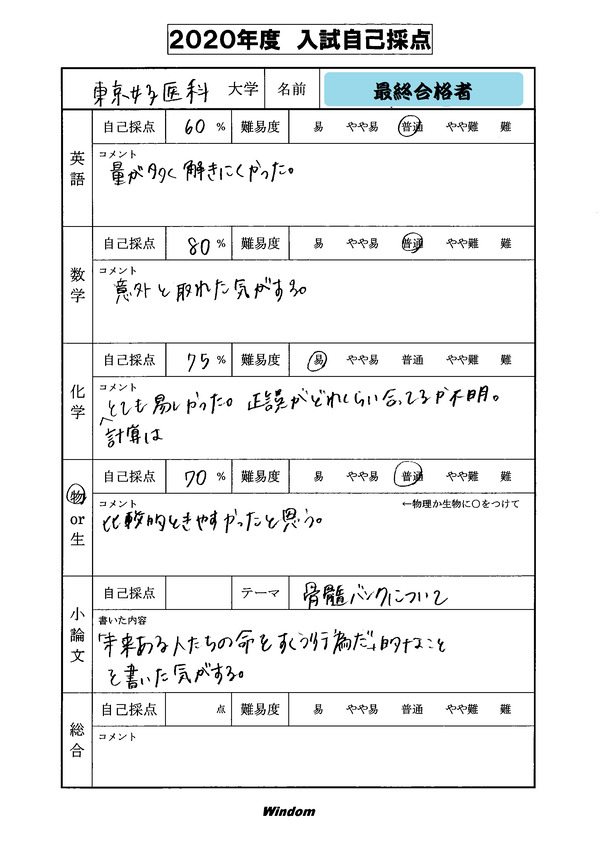 2020年度 入試自己採点
東京女子医科 大学 名前 最終合格者
英語 自己採点 60 % 難易度 易 やや易 普通 やや難 難
コメント
量が多く解きにくかった。
数学 自己採点 80 % 難易度 易 やや易 普通 やや難 難
コメント
意外と取れた気がする。
化学 自己採点 75 % 難易度 易 やや易 普通 やや難 難
コメント
とても易しかった。正誤がどれくらい合ってるか不明。
計算は
物or生 自己採点 70 % 難易度 易 やや易 普通 やや難 難
コメント ←物理か生物に○をつけて
比較的ときやすかったと思う。
小論文 自己採点 テーマ 骨髄バンクについて
書いた内容
「未来ある人たちの命をすくう行為だ」的なこと
を書いた気がする。
総合 自己採点 点 難易度 易 やや易 普通 やや難 難
コメント
Windom